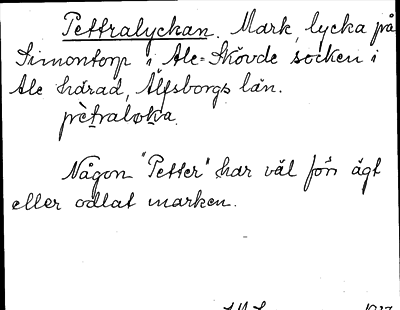 Pettralyckan. Mark, lycka på
Simontorp i Ale-Skövde socken i
Ale härad, Älfsborgs län.
Någon "Petter" har väl förr ägt
eller odlat marken.